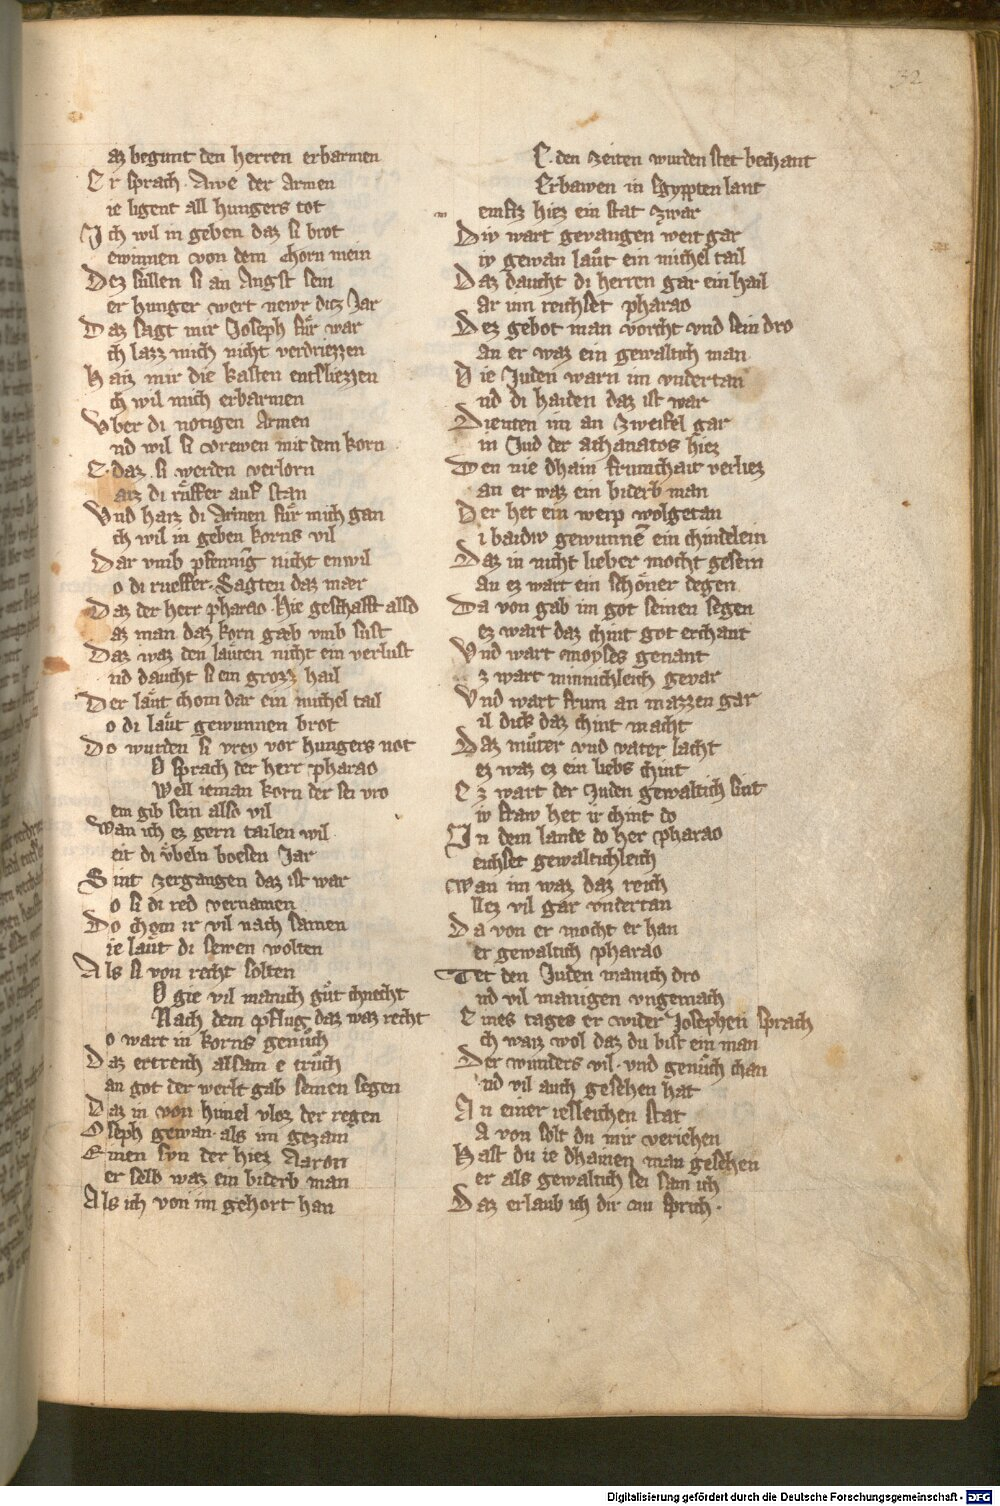 32
az begunt den herren erbarmen
Er sprach Awe der Armen
ie ligent all hungers tot
Ich wil in geben daz si brot
ewinnen von dem chorn mein
Dez sullen si an Angst sein
er hunger wert newr ditz Jar
Daz sagt mir Joseph für war
ch lazz mich nicht verdriezzen
Haiz mir die kasten entsliezzen
ch wil mich erbarmen
Vber di notigen Armen
nd wil si vrewen mit dem korn
E daz si werden verlorn
aiz di rüffer auf stan
Vnd haiz di Armen für mich gan
ch wil in geben korns vil
Dar vmb pfenning nicht enwil
o di rueffer Sagten daz maer
Daz der herr pharao Hie geschafft also
az man daz korn gaeb vmb sust
Daz waz den laüten nicht ein verlust
nd daucht si ein grozz hail
Der laüt chom dar ein michel tail
o di laüt gewunnen brot
Do wurden si vrev vor hungers not
O sprach der herr pharao
Well ieman korn der sei vro
em gib sein also vil
Wan ich ez gern tailen wil
eit di vbeln boesen Jar
Sint zergangen daz ist war
o si di red vernamen
Do chom ir vil nach samen
ie laüt di sewen wolten
Als si von recht solten
O gie vil manich güt chnecht
Nach dem pflug daz waz recht
o wart in korns genüch
Daz ertreich alsam e trüch
an got der werlt gab seinen segen
Daz in von himel vloz der regen
Oseph gewan als im gezam
Einen syn der hiez Aaron
er selb waz ein biderb man
Als ich von im gehort han
E den zeiten wurden stet bechant
Erbawen in Egypten lant
emfiz hiez ein stat zwar
Div wart gevangen weit gar
iv gewan laüt ein michel tail
Daz daucht di herren gar ein hail
ar inn reichset pharao
Dez gebot man vorcht vnd sein dro
an er waz ein gewaltich man
Die Juden warn im vndertan
nd di haiden daz ist war
Dienten im an zweifel gar
in Jud der athanatos hiez
Den nie dhain frumchait verliez
an er waz ein biderb man
Der het ein weip wolgetan
i baidiv gewunnen ein chindelein
Daz in nicht lieber mocht gesein
an ez wart ein schöner degen
Da von gab im got seinen segen
ez wart daz chint got erchant
Vnd wart Moyses genant
z wart minnichleich gevar
Vnd wart frum an mazzen gar
il dick daz chint macht
Daz müter vnd vater lacht
ez waz ez ein liebs chint
Ez wart der Juden gewaltich sint
iv fraw het ir chint do
In dem lande do her pharao
eichset gewaltichleich
Wan im waz daz reich
llez vil gar vndertan
Da von er mocht er han
er gewaltich pharao
Tet den Juden manich dro
nd vil manigen vngemach
Eines tages er wider Josephen sprach
ch waiz wol daz du bist ein man
Der wunders vil vnd genüch chan
nd vil auch gesehen hat
An einer iesleichen stat
A von solt du mir veriehen
Hast du ie dhainen man gesehen
er als gewaltich sei sam ich
Daz erlaub ich dir nu sprich
Digitalisierung gefördert durch die Deutsche Forschungsgemeinschaft - DFG